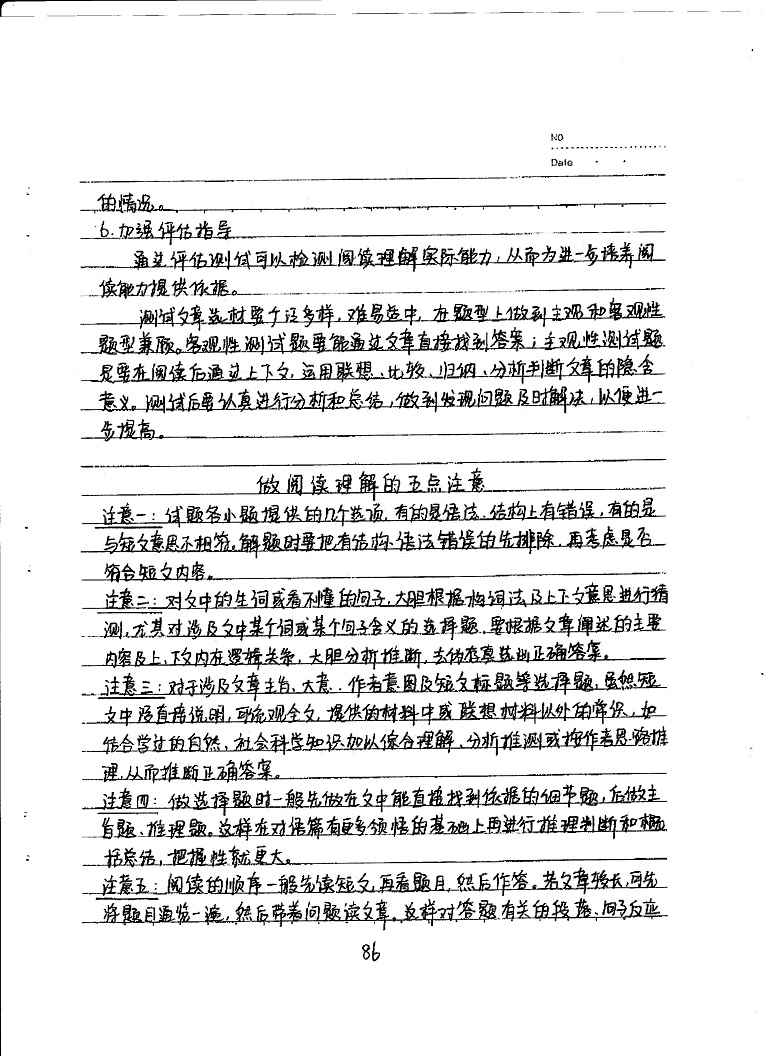 NO
Date
的情况。
6.加强评估指导
通过评估测试可以检测阅读理解实际能力,从而为进一步培养阅
读能力提供依据。
测试文章选材要广泛多样,难易适中,在题型上做到主观和客观性
题型兼顾。客观性测试题要能通过文章直接找到答案;主观性测试题
是要在阅读后通过上下文,运用联想、比较、归纳、分析判断文章的隐含
意义。测试后要认真进行分析和总结,做到发现问题及时解法,以便进一
步提高。
做阅读理解的五点注意
注意一:试题各小题提供的几个选项,有的是语法、结构上有错误,有的是
与短文意思不相符。解题时要把有结构、语法错误的先排除,再考虑是否
符合短文内容。
注意二:对文中的生词或看不懂的句子,大胆根据构词法及上下文意思进行猜
测,尤其对涉及文中某个词或某个句子含义的选择题,要根据文章阐述的主要
内容及上、下文内在逻辑关系,大胆分析推断,去伪存真选出正确答案。
注意三:对于涉及文章主旨、大意、作者意图及短文标题等选择题,虽然短
文中没直接说明,可综观全文,提供的材料中或联想材料以外的常识,如
结合学过的自然、社会科学知识加以综合理解、分析推测或按作者思路推
理,从而推断正确答案。
注意四:做选择题时一般先做在文中能直接找到依据的细节题,后做主
旨题、推理题。这样在对语篇有更多领悟的基础上再进行推理判断和概
括总结,把握性就更大。
注意五:阅读的顺序一般先读短文,再看题目,然后作答。若文章较长,可先
将题目通览一遍,然后带着问题读文章。这样对答题有关的段落、句子反应
86